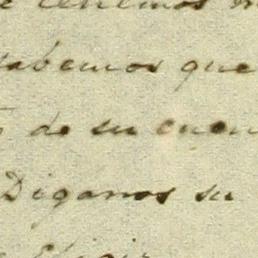 tenemos
sabemos que
de su cuen
Diganos su